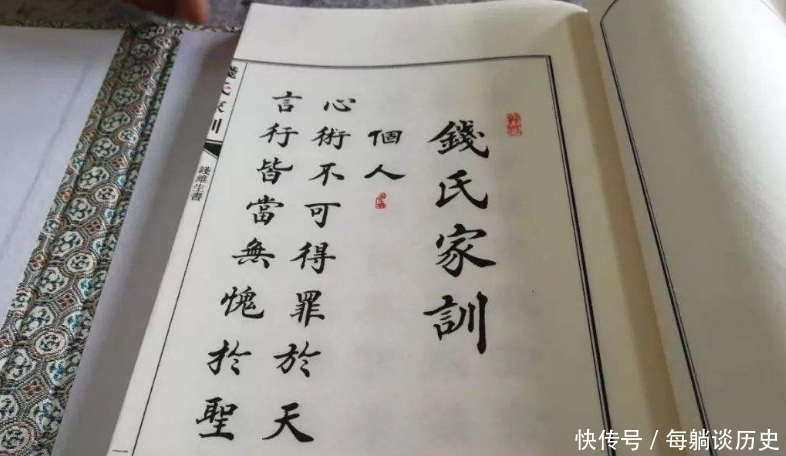 錢氏家訓
個人
心術不可得罪於天
言行皆當無愧於聖
錢氏家訓
錢維生書
一
快传号 / 每躺谈历史